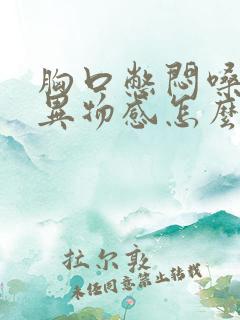 胸口憋悶嗓
異物感怎麼
拉尔敦
未经同意禁止转载